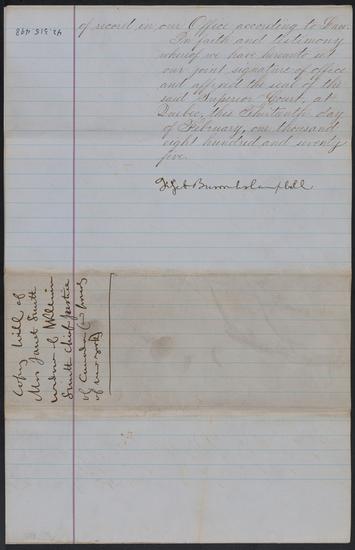 42.315.498
of record in our Office according to Law.
In faith and testimony
whereof we have hereunto set
our joint signature of office
and affixed the seal of the
said Superior Court, at
Quebec, this day
of February, one thousand
eight hundred and seventy
five.
Burroughs Campbell
Copy Will of
Mrs Janet Smith
widow of William
Smith Chief Justice
of Canada
of New York